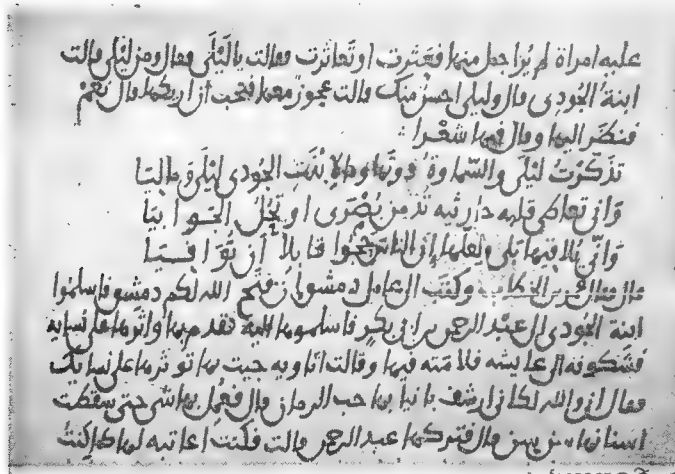 عليه امراة لم ير اجمل منها فعثرت او تعاثرت فقالت يا لليلى فقال ومن ليلى قالت
ابنة الجودي قال وليلى احسن منك قالت عجوز معها فتحب ان اريكها قال نعم
فنظر اليها وقال فيها شعرا
تذكرت ليلى والسماوة دونها وما لابنت الجودي ليلى وماليا
وانى تعاطي قلبه حارثية تدمن بصرى او تحل الجوابيا
وانى تلاقيها بلى ولعلها إن الناس حجوا قابلا أن توافيا
قال فقال عمر بن الخطاب وكتب الى عامل دمشق ان فتح الله لكم دمشق فاسلموا
ابنة الجودي الى عبد الرحمن بن ابي بكر فاسلموها اليه فقدم بها واثرها على نسايه
فشكونه الى عايشة فلامته فيها وقالت انا وبه جيت بها توثرها على نسايك
فقال اني والله لكاني ارشف بانيابها حب الرمان قال فعمل بها شي حتى سقطت
اسنانها قال فتركها عبد الرحمن قالت فكنت اعاتبه لها كما كنت